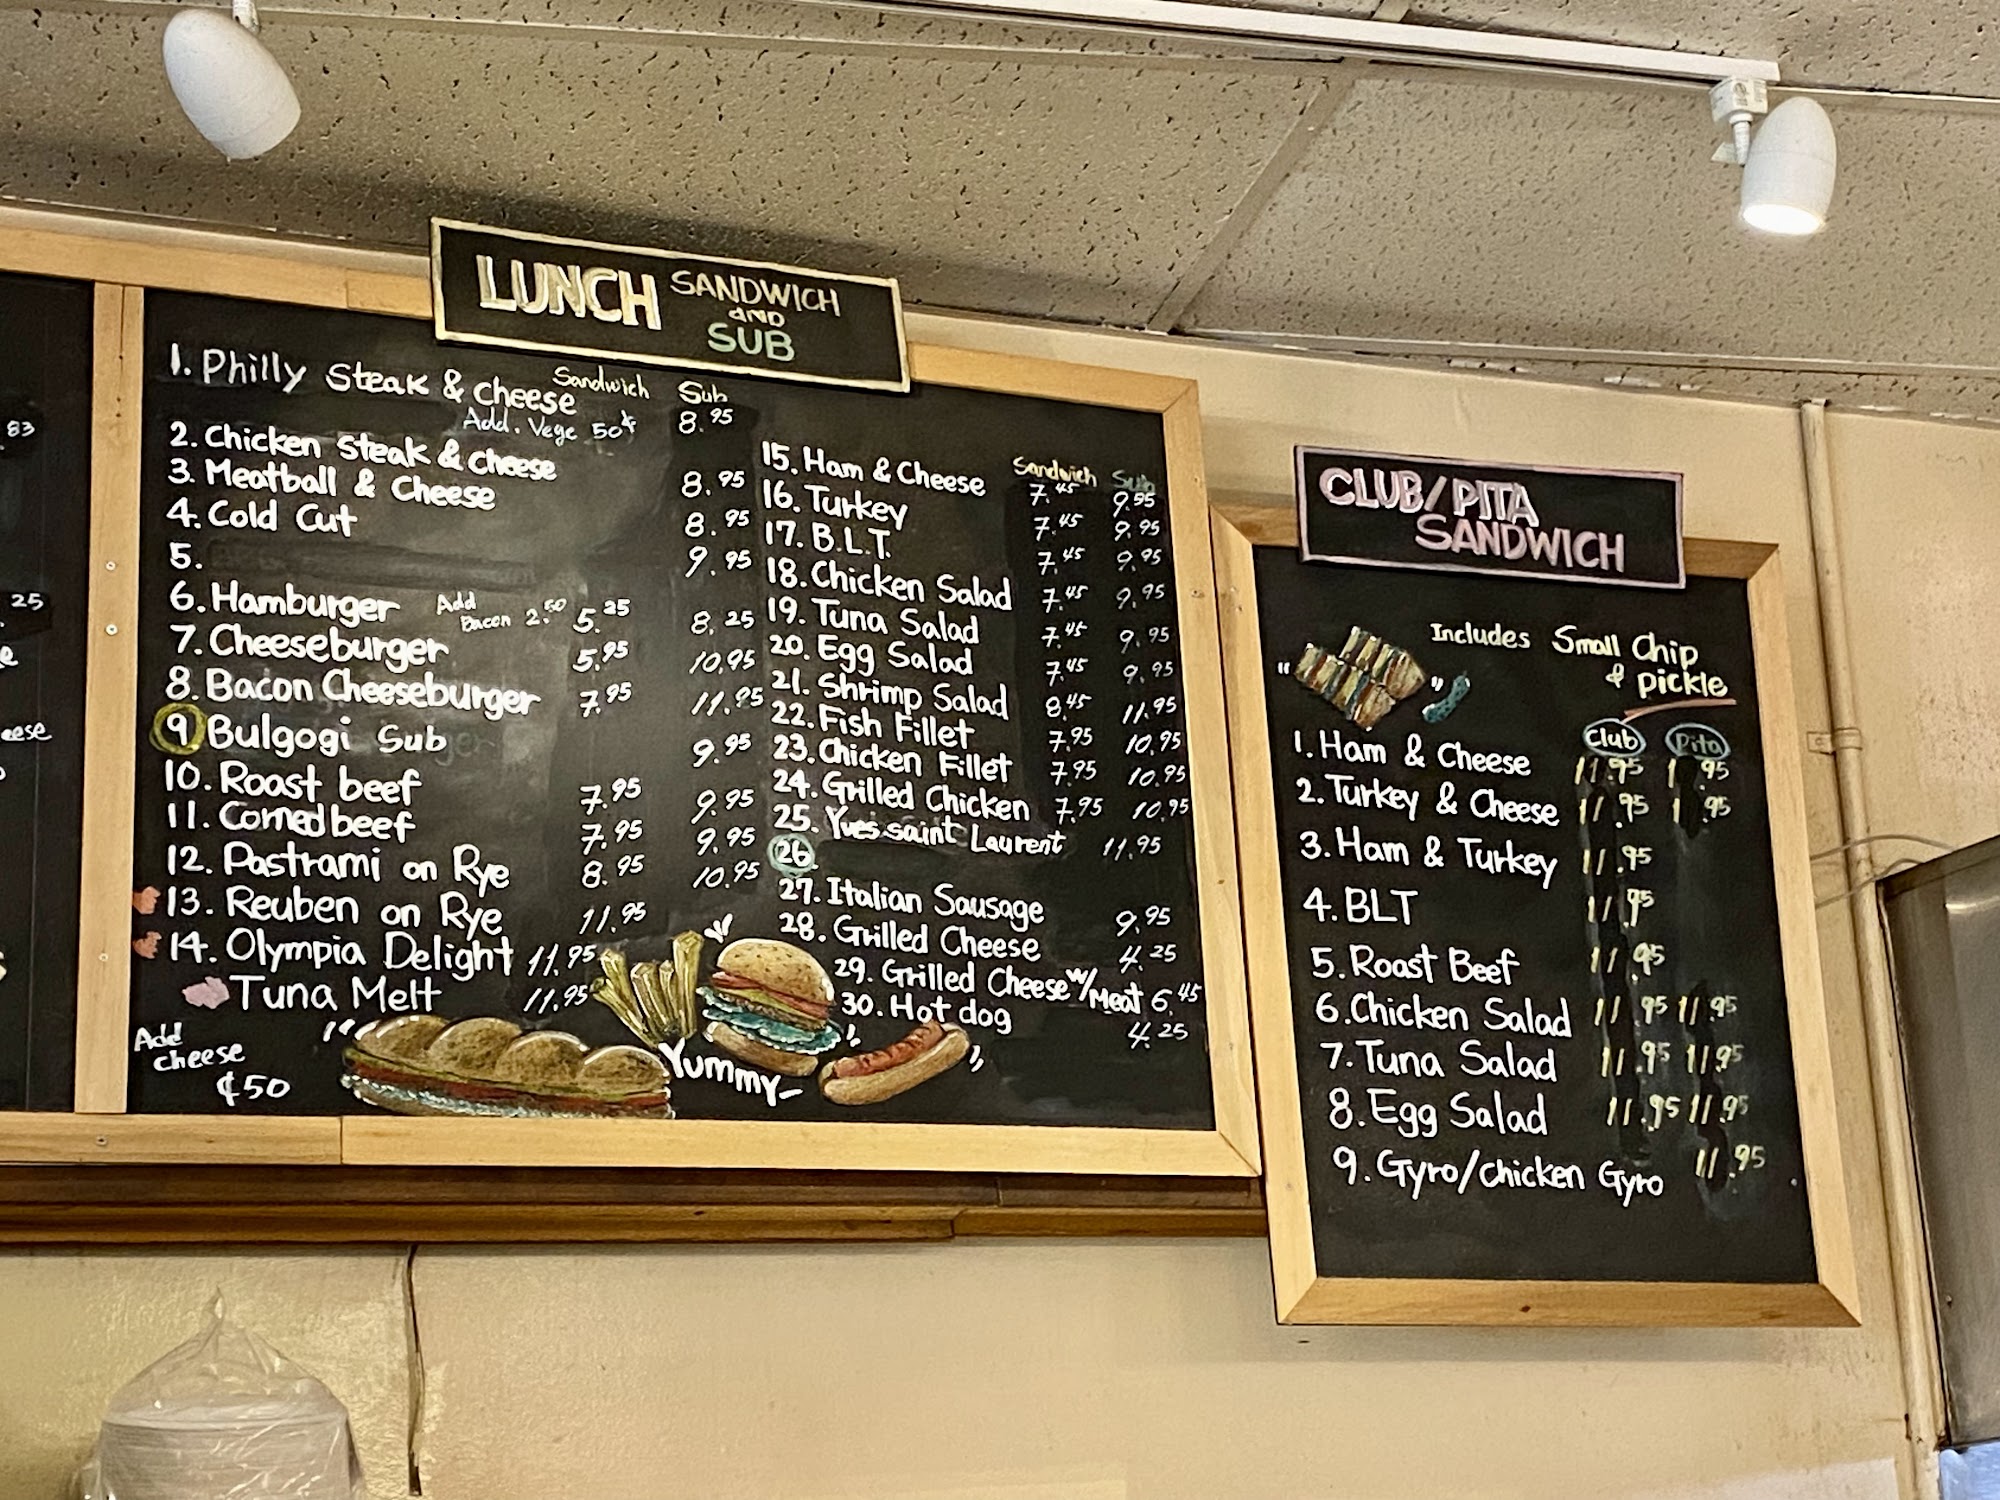 .83
25
e
eese
LUNCH SANDWICH
and
SUB
Sandwich Sub
1. Philly Steak & Cheese 8.95
Add. Vege 50¢
2. Chicken Steak & Cheese 8.95
3. Meatball & Cheese 8.95
4. Cold Cut 9.95
5.
6. Hamburger Add Bacon 2.50 5.25 8.25
7. Cheeseburger 5.95 10.95
8. Bacon Cheeseburger 7.95 11.95
9 Bulgogi Sub 9.95
10. Roast beef 7.95 9.95
11. Corned beef 7.95 9.95
12. Pastrami on Rye 8.95 10.95
13. Reuben on Rye 11.95
14. Olympia Delight 11.95
Tuna Melt 11.95
Add
cheese
¢50
Sandwich Sub
15. Ham & Cheese 7.45 9.95
16. Turkey 7.45 9.95
17. B.L.T. 7.45 9.95
18. Chicken Salad 7.45 9.95
19. Tuna Salad 7.45 9.95
20. Egg Salad 7.45 9.95
21. Shrimp Salad 8.45 11.95
22. Fish Fillet 7.95 10.95
23. Chicken Fillet 7.95 10.95
24. Grilled Chicken 7.95 10.95
25. Yves saint Laurent 11.95
26
27. Italian Sausage 9.95
28. Grilled Cheese 4.25
29. Grilled Cheese w/Meat 6.45
30. Hot dog 4.25
Yummy~
CLUB/PITA
SANDWICH
Includes Small Chip
& pickle
Club Pita
1. Ham & Cheese 11.95 1 .95
2. Turkey & Cheese 11.95 1 .95
3. Ham & Turkey 11.95
4. BLT 11.95
5. Roast Beef 11.95
6. Chicken Salad 11.95 11.95
7. Tuna Salad 11.95 11.95
8. Egg Salad 11.95 11.95
9. Gyro/Chicken Gyro 11.95